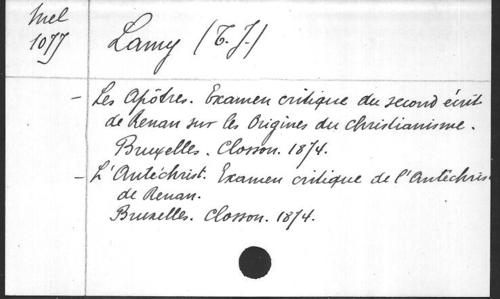 Mel
1077
Lamy (T. J.)
- Les Apôtres. Examen critique du second écrit
de Renan sur les Origines du Christianisme.
Bruxelles. Closson. 1874.
- L'Antéchrist. Examen critique de l'Antéchris
de Renan.
Bruxelles. Closson. 1874.